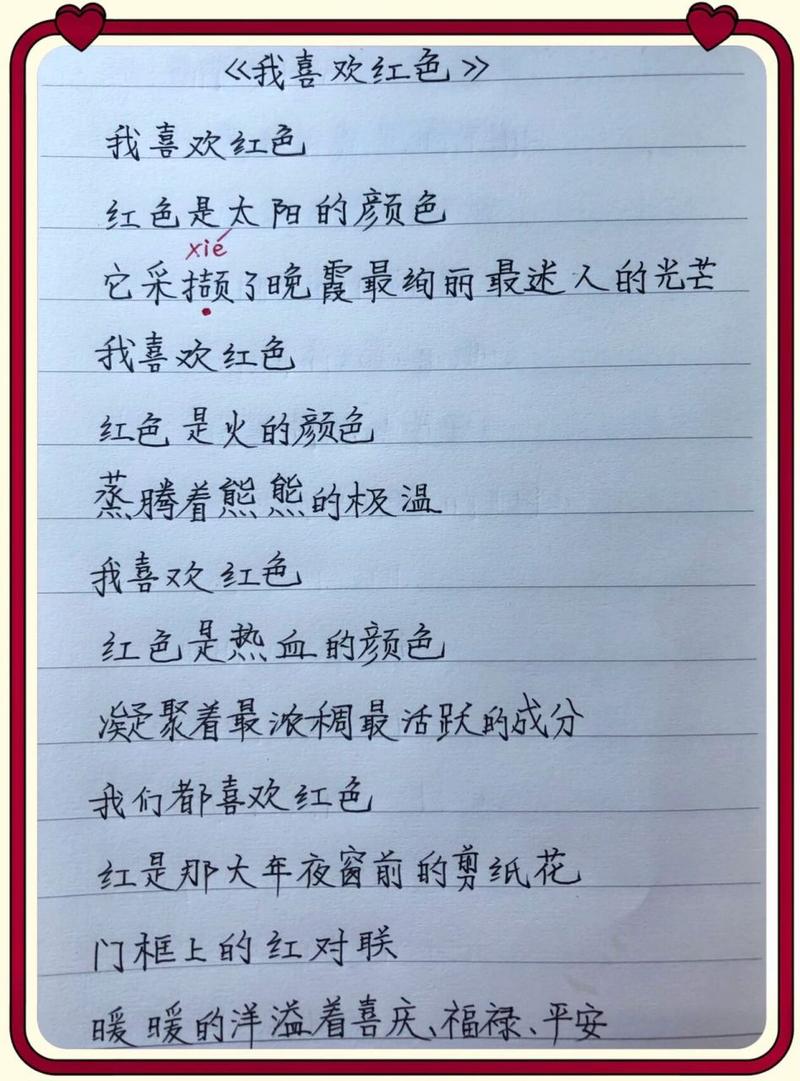 《我喜欢红色》
我喜欢红色
红色是太阳的颜色
xié
它采撷了晚霞最绚丽最迷人的光芒
我喜欢红色
红色是火的颜色
蒸腾着熊熊的极温
我喜欢红色
红色是热血的颜色
凝聚着最浓稠最活跃的成分
我们都喜欢红色
红是那大年夜窗前的剪纸花
门框上的红对联
暖暖的洋溢着喜庆、福禄、平安